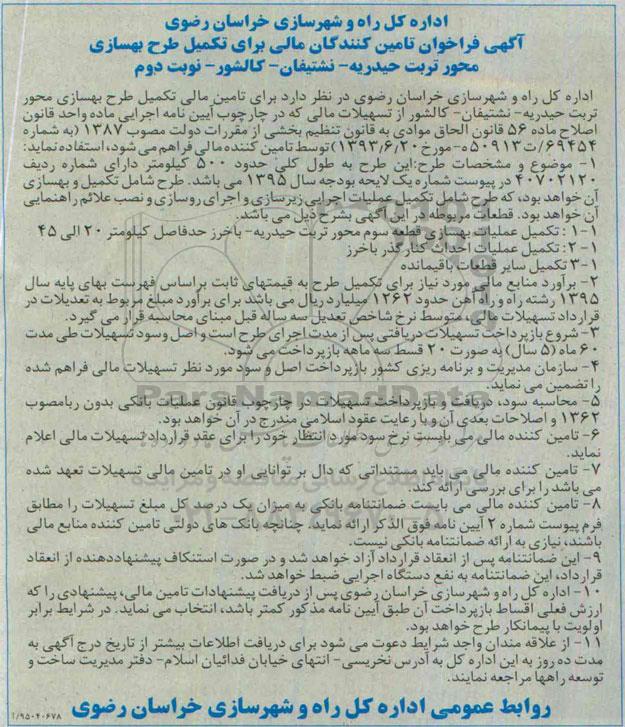 اداره کل راه و شهرسازی خراسان رضوی
آگهی فراخوان تامین کنندگان مالی برای تکمیل طرح بهسازی
محور تربت حیدریه- نشتیفان- کالشور- نوبت دوم
اداره کل راه و شهرسازی خراسان رضوی در نظر دارد برای تامین مالی تکمیل طرح بهسازی محور
تربت حیدریه- نشتیفان- کالشور از تسهیلات مالی که در چارچوب آیین نامه اجرایی ماده واحد قانون
اصلاح ماده ۵۶ قانون الحاق موادی به قانون تنظیم بخشی از مقررات دولت مصوب ۱۳۸۷ (به شماره
۶۹۴۵۴/ت۵۰۹۱۳ه-مورخ ۱۳۹۳/۶/۲۰) توسط تامین کننده مالی فراهم می شود، استفاده نماید:
۱- موضوع و مشخصات طرح:این طرح به طول کلی حدود ۵۰۰ کیلومتر دارای شماره ردیف
۴۰۷۰۲۱۲۰ در پیوست شماره یک لایحه بودجه سال ۱۳۹۵ می باشد. طرح شامل تکمیل و بهسازی
آن خواهد بود، که طرح شامل تکمیل عملیات اجرایی زیرسازی و اجرای روسازی و نصب علائم راهنمایی
آن خواهد بود. قطعات مربوطه در این آگهی بشرح ذیل می باشد.
۱-۱ : تکمیل عملیات بهسازی قطعه سوم محور تربت حیدریه- باخرز حدفاصل کیلومتر ۲۰ الی ۴۵
۲-۱ : تکمیل عملیات احداث کنار گذر باخرز
۳-۱ تکمیل سایر قطعات باقیمانده
۲- برآورد منابع مالی مورد نیاز برای تکمیل طرح به قیمتهای ثابت براساس فهرست بهای پایه سال
۱۳۹۵ رشته راه و راه آهن حدود ۱۲۶۲ میلیارد ریال می باشد برای برآورد مبلغ مربوط به تعدیلات در
قرارداد تسهیلات مالی، متوسط نرخ شاخص تعدیل سه ساله قبل مبنای محاسبه قرار می گیرد.
۳- شروع بازپرداخت تسهیلات دریافتی پس از مدت اجرای طرح است و اصل وسود تسهیلات طی مدت
۶۰ ماه (۵ سال) به صورت ۲۰ قسط سه ماهه بازپرداخت می شود.
۴- سازمان مدیریت و برنامه ریزی کشور بازپرداخت اصل و سود مورد نظر تسهیلات مالی فراهم شده
را تضمین می نماید.
۵- محاسبه سود، دریافت و بازپرداخت تسهیلات در چارچوب قانون عملیات بانکی بدون ربامصوب
۱۳۶۲ و اصلاحات بعدی آن و با رعایت عقود اسلامی مندرج در آن خواهد بود.
۶- تامین کننده مالی می بایست نرخ سود مورد انتظار خود را برای عقد قرارداد تسهیلات مالی اعلام
نماید.
۷- تامین کننده مالی می باید مستنداتی که دال بر توانایی او در تامین مالی تسهیلات تعهد شده
می باشد را برای بررسی ارائه کند.
۸- تامین کننده مالی می بایست ضمانتنامه بانکی به میزان یک درصد کل مبلغ تسهیلات را مطابق
فرم پیوست شماره ۲ آیین نامه فوق الذکر ارائه نماید. چنانچه بانک های دولتی تامین کننده منابع مالی
باشند، نیازی به ارائه ضمانتنامه بانکی نیست.
۹- این ضمانتنامه پس از انعقاد قرارداد آزاد خواهد شد و در صورت استنکاف پیشنهاددهنده از انعقاد
قرارداد، این ضمانتنامه به نفع دستگاه اجرایی ضبط خواهد شد.
۱۰- اداره کل راه و شهرسازی خراسان رضوی پس از دریافت پیشنهادات تامین مالی، پیشنهادی را که
ارزش فعلی اقساط بازپرداخت آن طبق آیین نامه مذکور کمتر باشد، انتخاب می نماید. در شرایط برابر
اولویت با پیمانکار طرح خواهد بود.
۱۱- از علاقه مندان واجد شرایط دعوت می شود برای دریافت اطلاعات بیشتر از تاریخ درج آگهی به
مدت ده روز به این اداره کل به آدرس نخریسی- انتهای خیابان فدائیان اسلام- دفتر مدیریت ساخت و
توسعه راهها مراجعه نمایند.
روابط عمومی اداره کل راه و شهرسازی خراسان رضوی
۹۵۰۴۰۶۷۸/ا
ParsNamadData